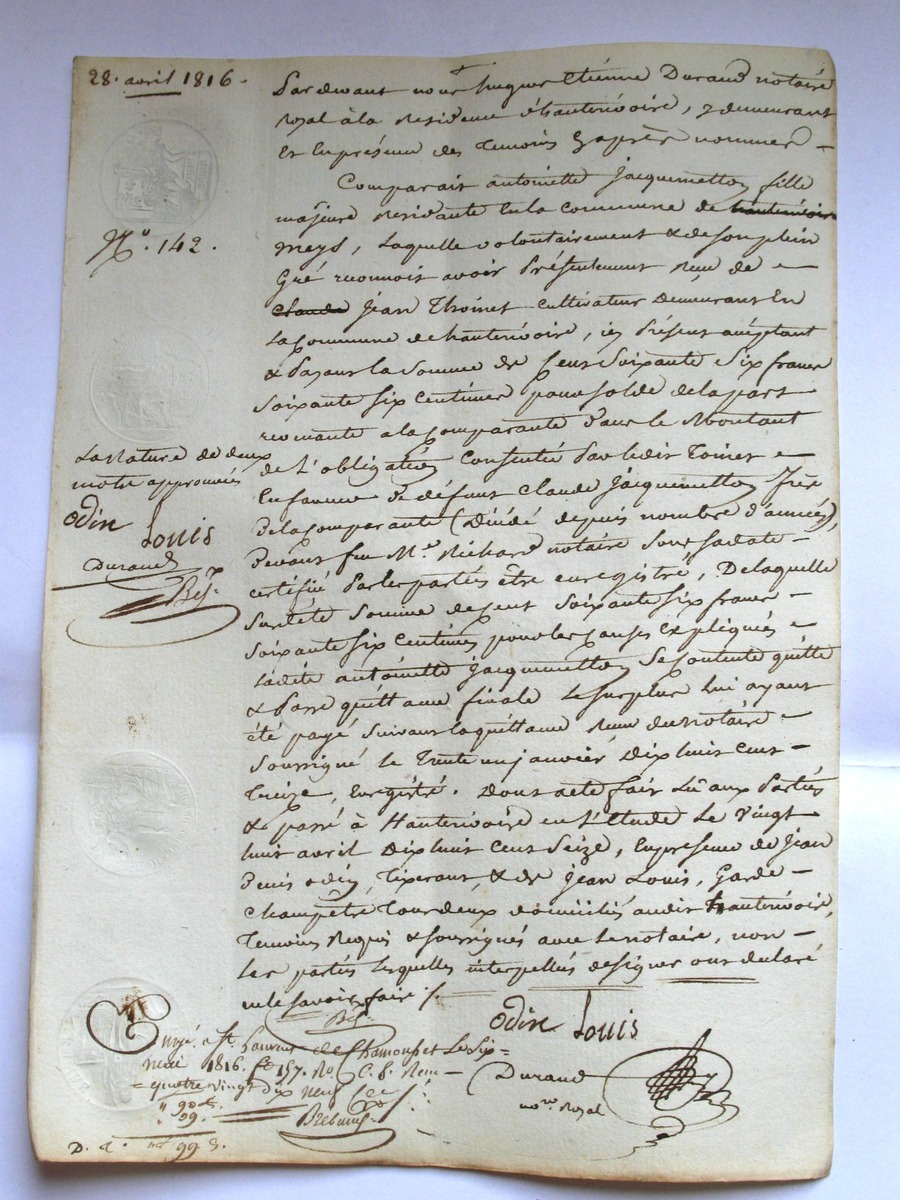 28. avril 1816.
Pardevant nous hugue Etiénne Durand notaire
Royal à la Residence d'hauterivoire, y demeurant
Et En présence des Temoins Cyaprès nommés
N.o 142.
Comparait antoinette Jacquemetton fille
majeure Residante En la commune de hauterivoire
meys, Laquelle volontairement & de son plein
Gré reconnoit avoir Présentement Reçu de
claude Jean Thoinet cultivateur Demeurant En
La Commune de hauterivoire, ici Présent acceptant
& Payant la Somme de Cent Soixante Six francs
Soixante six Centimes pour solde de la part
revenante a la Comparante dans le Montant
La Rature de deux
mots approuvées
de L'obligation Consentie Par ledit Toinet
En faveur de défunt Claude Jacquemetton frère
odin Louis
Durand
De la Comparante (Décédé depuis nombre d'années),
devant feu M.e Richard notaire Sous sa date
certifié Par les parties être enregistré, De laquelle
Susdite Somme de Cent Soixante six francs
Soixante six Centimes pour les Causes Expliquées
Ladite antoinette Jacquemetton Se Contente quitte
& Passe quittance finale Le surplus lui ayant
été payé Suivant la quittance Reçue du Notaire
Soussigné le Trente un janvier Dix huit Cent
Treize, Enregistré. Dont acte fait Lû aux Parties
& passé à Hauterivoire en L'Etude Le Vingt
huit avril Dix huit Cent Seize, En presence de Jean
Denis odin, Tixerant, & de Jean Louis, Garde
Champêtre Tous deux domiciliés audit hauterivoire,
Temoins Requis & soussignés avec le notaire, non
Les parties Lesquelles interpellées de signer ont declaré
ne le savoir faire ./.
odin Louis
Durand
no.re Royal
Enregé. a St. Laurent de Chamousset Le Six
mai 1816. fo 157. Ro. C. 8. Reçu
quatre vingt dix neuf
99.
D. 99 c.